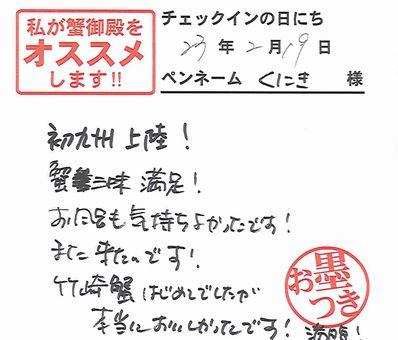 私が蟹御殿を
オススメ
します!!
チェックインの日にち
23年2月19日
ペンネーム くにき 様
初九州上陸!
蟹三昧 満足!
お風呂も気持ちよかったです!
また来たいです!
竹崎蟹はじめてでしたが
本当においしかったです! 満腹!
お墨つき